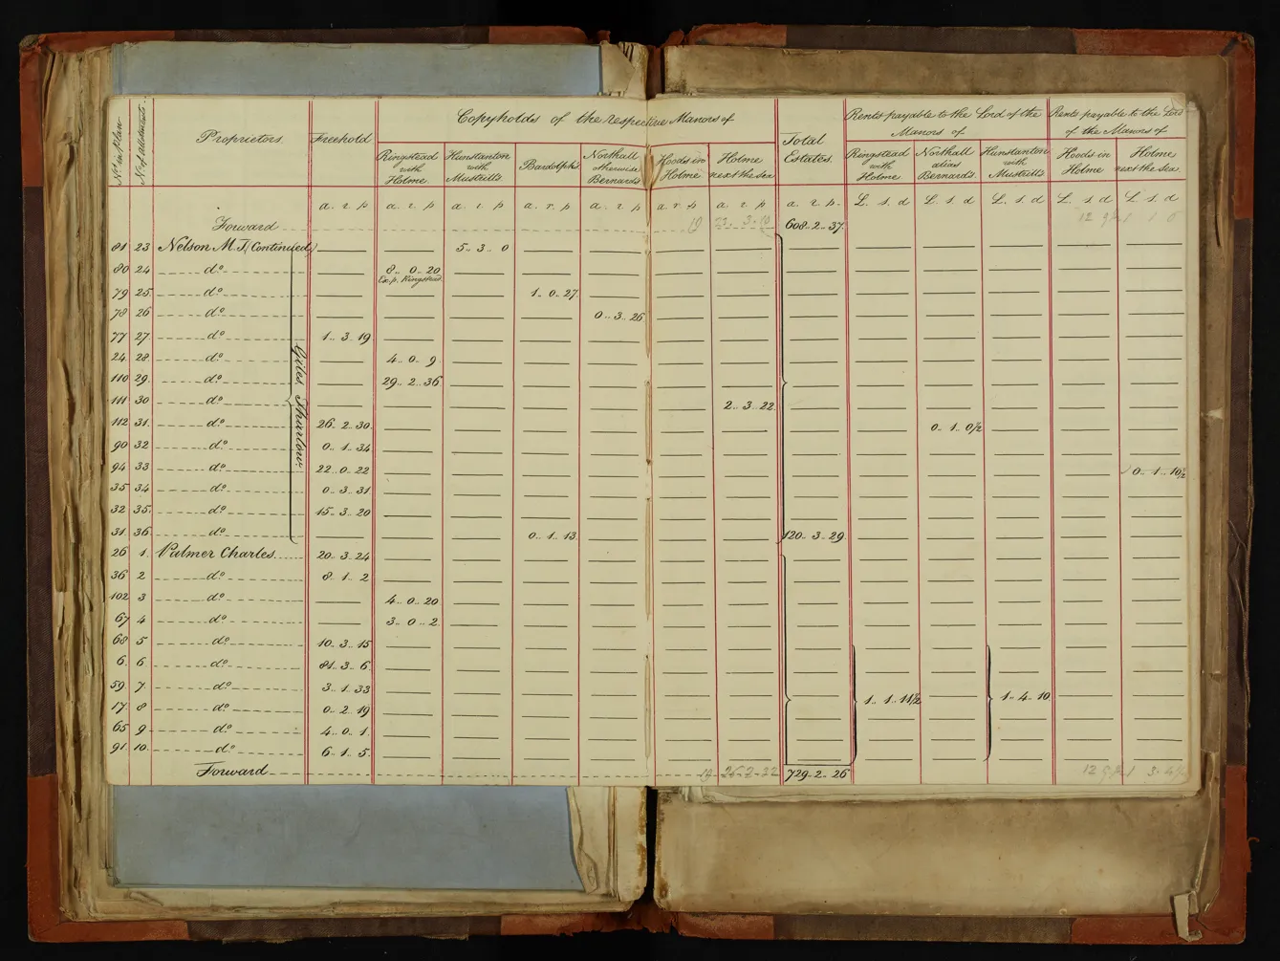 No. in Plan
No. of Allotments
Proprietors
Freehold
Copyholds of the respective Manors of
Ringstead with Holme
Hunstanton with Mustrells
Bardolphs
Northall otherwise Bernards
Hoods in Holme
Holme next the Sea
Total Estates.
Rents payable to the Lord of the Manors of
Ringstead with Holme
Northall alias Bernards
Hunstanton with Mustrells
Rents payable to the Lord of the Manors of
Hoods in Holme
Holme next the Sea
a. r. p a. r. p a. r. p a. r. p a. r. p a. r. p a. r. p a. r. p. L. s. d L. s. d L. s. d L. s. d L. s. d
Forward 19 23..3..10 608..2..37. 12 9½ 1 1 0
81 23 Nelson M. J. (Continued) 5..3..0
80 24 do. 8..0..20
Ex. p. Ringstead
79 25. do. 1..0..27.
78 26 do. 0..3..26
77 27 do. 1..3..19
24 28. do. 4..0..9
110 29. do. 29..2..36
111 30 do. 2..3..22
112 31. do. 26..2..30. 0..1..0½
90 32 do. 0..1..34
94 33 do. 22..0..22 0..1..10½
35 34 do. 0..3..31
32 35. do. 15..3..20
31 36. do. 0..1..13. 120..3..29
Giles Thurlow
26 1. Palmer Charles 20..3..24
36 2 do. 8..1..2
102 3 do. 4..0..20
67 4 do. 3..0..2.
68 5 do. 10..3..15
6. 6 do. 81..3..6
59 7. do. 3..1..33 1..1..11½ 1..4..10
17 8 do. 0..2..19
65 9 do. 4..0..1.
91. 10. do. 6..1..5.
Forward 19 26..2..32 729..2..26 12 9½ 1 3..4½